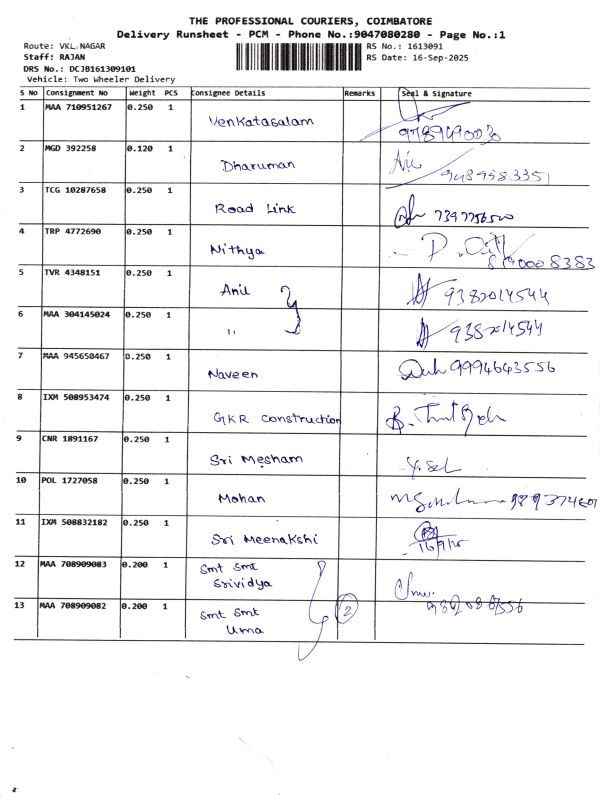 THE PROFESSIONAL COURIERS, COIMBATORE
Delivery Runsheet - PCM - Phone No.:9047080280 - Page No.:1
Route: VKL NAGAR RS No.: 1613091
Staff: RAJAN RS Date: 16-Sep-2025
DRS No.: DCJB161309101
Vehicle: Two Wheeler Delivery
S No Consignment No Weight PCS Consignee Details Remarks Seal & Signature
1 MAA 710951267 0.250 1 Venkatasalam 9789490030
2 MGD 392258 0.120 1 Dharuman 9489583351
3 TCG 10287658 0.250 1 Road Link
4 TRP 4772690 0.250 1 Nithya
5 TVR 4348151 0.250 1 Anil 9382014544
6 MAA 304145024 0.250 1 " 9382014544
7 MAA 945650467 0.250 1 Naveen 9994643556
8 IXM 508953474 0.250 1 GKR Construction
9 CNR 1891167 0.250 1 Sri Mesham
10 POL 1727058 0.250 1 Mohan
11 IXM 508832182 0.250 1 Sri Meenakshi 16/9/25
12 MAA 708909083 0.200 1 Smt Smt
Srividya
13 MAA 708909082 0.200 1 Smt Smt 2
Uma